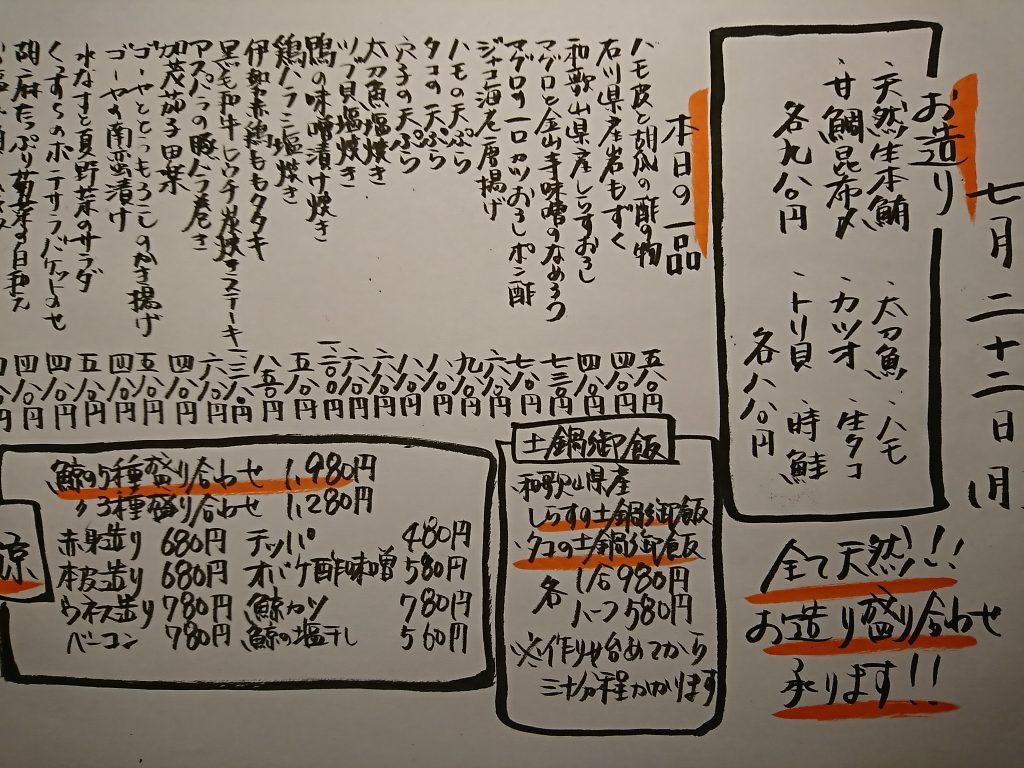 七月二十二日
お造り
・天然生本鮪
・甘鯛昆布〆
各九八〇円
・太刀魚 ・ハモ
・カツオ ・生タコ
・トリ貝 ・時鮭
各八八〇円
全て天然!!
お造り盛り合わせ
承ります!!
本日の一品
ハモ皮と胡瓜の酢の物 五八〇円
石川県産岩もずく 四八〇円
和歌山県産しらすおろし 四八〇円
マグロと金山寺味噌のなめろう 七三〇円
マグロの一口カツおろしポン酢 七八〇円
ジャコ海老唐揚げ 六八〇円
ハモの天ぷら 九八〇円
タコの天ぷら 八八〇円
穴子の天ぷら 八八〇円
太刀魚塩焼き 六八〇円
ツブ貝塩焼き 六八〇円
鴨の味噌漬け焼き
鶏ハラミ塩焼き 五八〇円
伊勢赤鶏ももタタキ 八五〇円
黒毛和牛 炭焼きステーキ
アスパラの豚バラ巻き 六八〇円
加茂茄子田楽 四八〇円
ゴーヤととうもろこしのかき揚げ 五八〇円
ゴーヤの南蛮漬け 四八〇円
水なすと夏野菜のサラダ 五八〇円
ポテサラバケットのせ 四八〇円
胡麻たっぷり菊菜の白和え 四八〇円
土鍋御飯
和歌山県産
しらすの土鍋御飯
タコの土鍋御飯
各 1合980円
ハーフ580円
※作り始めてから
三十分程かかります
鯨の5種盛り合わせ 1,980円
〃 3種盛り合わせ 1,280円
赤身造り 680円 テッパ 480円
本皮造り 680円 オバケ酢味噌 580円
ウネス造り 780円 鯨カツ 780円
ベーコン 780円 鯨の塩干し 560円